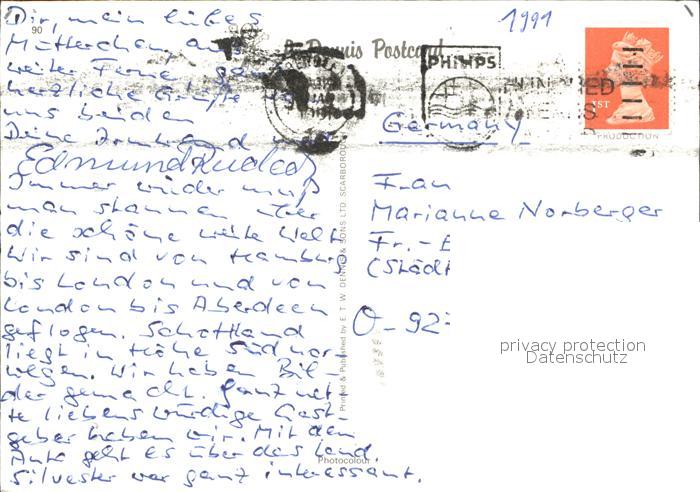 Dir, mein liebes
Mütterchen, aus
weiter Ferne ganz
herzliche Grüße
uns beiden
Deine Irmtraud
Edmund Rudolf
Immer wieder muß
man staunen über
die schöne weite Welt
Wir sind von Hamburg
bis London und von
London bis Aberdeen
geflogen. Schottland
liegt in Höhe Südnor-
wegen. Wir haben Bil-
der gemacht. Ganz net-
te liebenswürdige Gast-
geber haben wir. Mit dem
Auto geht es über das Land.
Silvester war ganz interessant.
90
Dennis Postcard
Printed & Published by E. T. W. DENNIS & SONS LTD. SCARBOROUGH
Photocolour
1991
PHILIPS
1ST
PRODUCTION
Germany
Frau
Marianne Norberger
Fr.-E
(Städt
O-92
privacy protection
Datenschutz